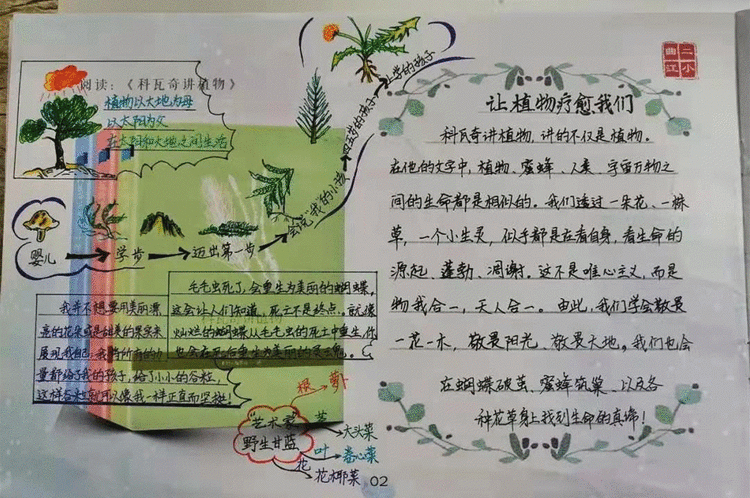 阅读：《科瓦奇讲植物》
植物以大地为母
以太阳为父
在太阳和大地之间生活
婴儿
学步
迈出第一步
会说话的小孩
四五岁的孩子
上学的孩子
我并不想要用美丽漂
亮的花朵或是甜美的果实来
展现我自己，我将所有的力
量都给了我的孩子，给了小小的谷粒，
这样谷粒就可以像我一样正直而坚挺！
毛毛虫死了，会重生为美丽的蝴蝶，
这会让人们知道，死亡不是终点。就像
灿烂的蝴蝶从毛毛虫的死亡中重生，你
也会在死后重生为美丽的灵魂。
"艺术家"
野生甘蓝
根
萝卜
茎
大头菜
叶
卷心菜
花
花椰菜
02
二小
曲江
让植物疗愈我们
科瓦奇讲植物，讲的不仅是植物。
在他的文字中，植物、蜜蜂、人类、宇宙万物之
间的生命都是相似的。我们透过一朵花、一棵
草，一个小生灵，似乎都是在看自身，看生命的
源起、蓬勃、凋谢。这不是唯心主义，而是
物我合一，天人合一。由此，我们学会敬畏
一花一木，敬畏阳光，敬畏大地。我们也会
在蝴蝶破茧、蜜蜂筑巢、以及各
种花草身上找到生命的真谛！